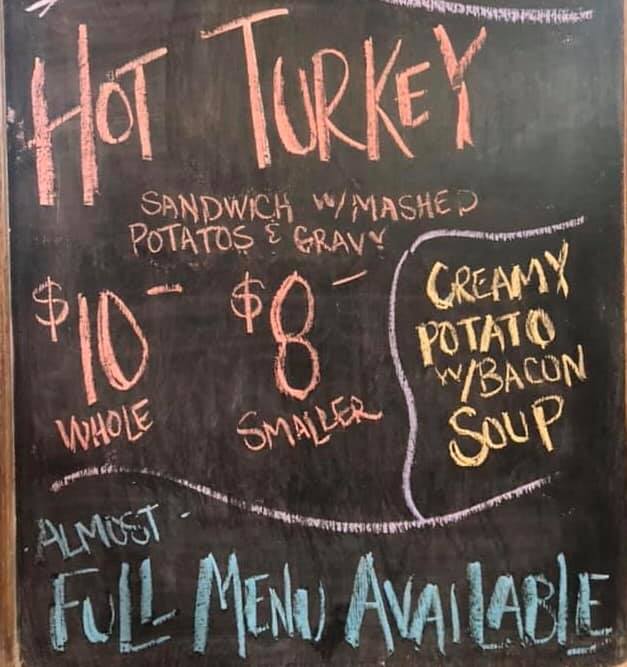 HOT TURKEY
SANDWICH W/MASHED
POTATOS & GRAVY
$10- $8-
WHOLE SMALLER
CREAMY
POTATO
W/BACON
SOUP
ALMOST
FULL MENU AVAILABLE